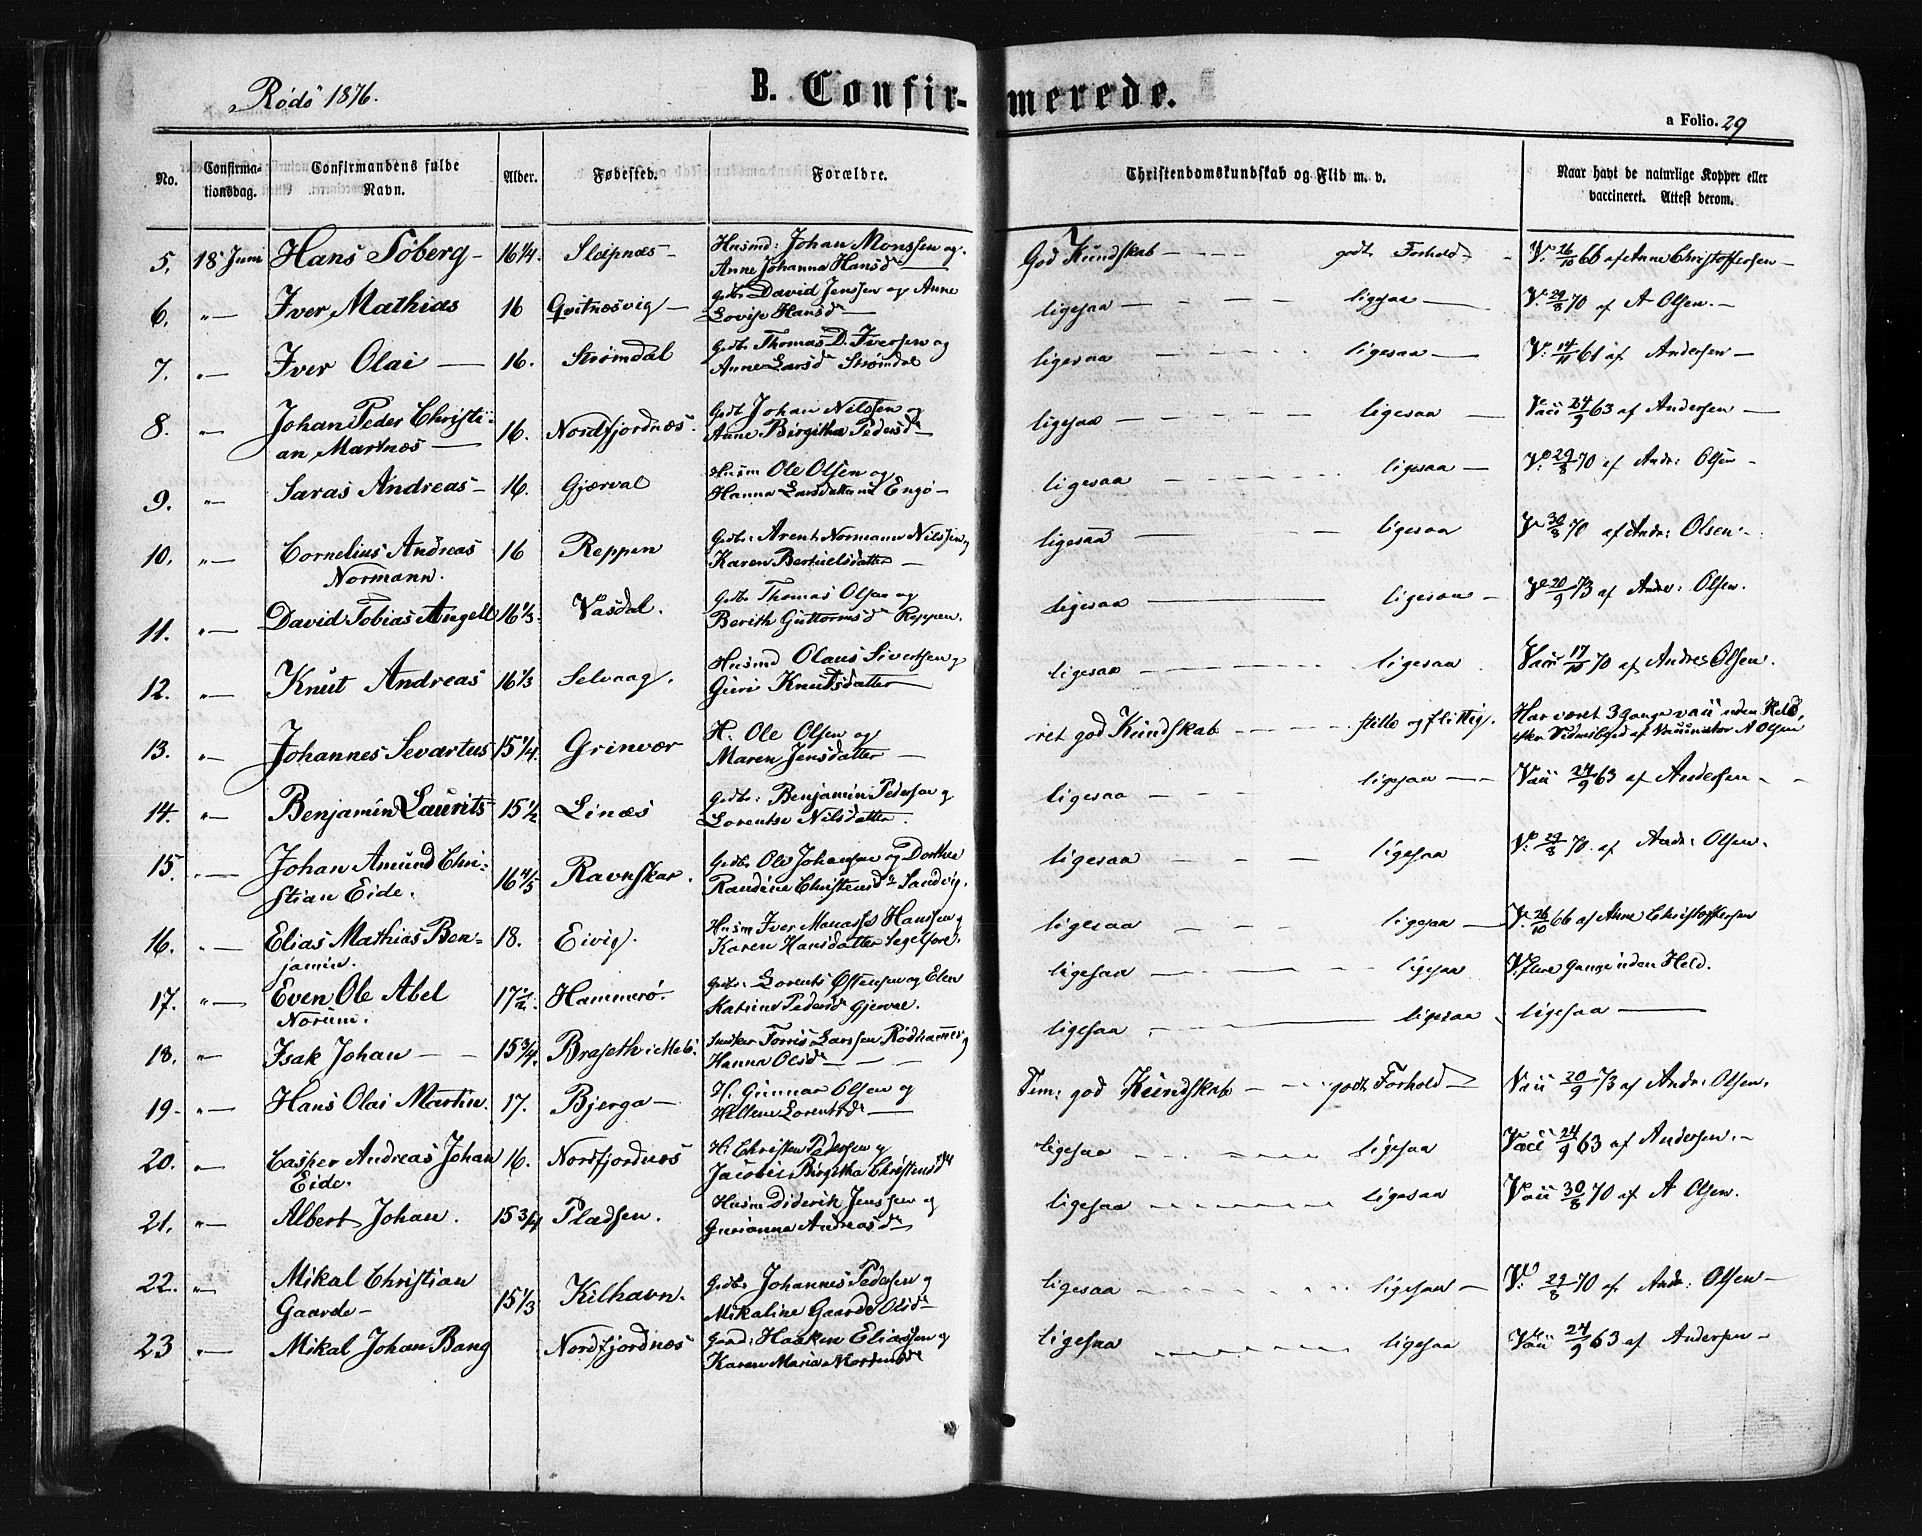 Rödö 1876.
B. Confirmerede.
a Folio. 29
No. Confirmationsdag. Confirmandens fulde Navn. Alder. Fødested. Forældre. Christendomskundskab og Flid m. v. Naar havt de naturlige Kopper eller vaccineret. Attest derom.
5. 18 Juni Hans Söberg - 16 1/4. Slapnæs - Husmd: Johan Monssen og Anne Johanna Hansd God Kundskab - godt Forhold - V. 26/10 66 af Anne Christoffersen -
6. " Iver Mathias 16 Qvitnæsvig - Gdbr David Jenssen og Anne Lovise Hansd ligesaa - ligesaa - V. 29/8 70 af A Olsen. -
7. " Iver Olai - 16. Strømdal Gdbr Thomas D. Iversen og Anne Larsd Strømdal ligesaa - ligesaa - V. 14/11 61 af Andersen -
8. " Johan Peder Christian Martnæs - 16. Nordfjordnæs. Gdbr Johan Nilssen og Anne Birgitha Pedersd ligesaa - ligesaa - Vacc 24/9 63 af Andersen -
9. " Saras Andreas - 16. Gjærval Husm Ole Olsen og Hanna Larsdatter Engö - ligesaa - ligesaa - V. 29/8 70 af Andr: Olsen -
10. " Cornelius Andreas Normann. 16 Reppen Gdbr: Arent Normann Nilssen og Karen Bertuelsdatter - ligesaa - ligesaa V. 30/8 70 af Andr: Olsen -
11. " David Tobias Angell 16 1/3. Vasdal. Gdbr Thomas Olsen og Berith Guttormsd Reppen. ligesaa - ligesaa - V. 20/9 73 af Andr: Olsen.
12. " Knut Andreas 16 1/3 Selvaag. Husmd Olaus Sivertsen og Guri Knutsdatter ligesaa - ligesaa Vacc 17/10 70 af Andres Olsen.
13. " Johannes Sevartus 15 1/4. Grinvær H. Ole Olsen og Maren Jensdatter - ret god Kundskab - stille og flittig. Har været 3 gange vacc uden Held, efter Vidnesbyrd af Vaccinatør A Olsen
14. " Benjamin Laurits 15 1/2 Linæs Gdbr: Benjamin Pedersen og Lorentse Nilsdatter. ligesaa - ligesaa - Vacc 24/9 63 af Andersen -
15. " Johan Amund Christian Eide. 16 4/5 Ravnskar. Gdbr Ole Johansen og Dorthea Randine Christensd Sandvig. ligesaa - ligesaa V. 29/8 70. af Andr: Olsen.
16. " Elias Mathias Benjamin. 18. Eivig. Husm Iver Manasse Hanssen og Karen Hansdatter Segelfore. ligesaa - ligesaa - V. 26/10 66 af Anne Christoffersen
17. " Even Ole Abel Norum. 17 1/2. Hammerö. Gdbr: Lorents Östensen og Elen Katrine Pedersd Gjerval. ligesaa - ligesaa V. flere Gange uden Held.
18. " Isak Johan - 15 3/4. Braseth i Melö. Torris Larssen Rödhammer og Hanna Olsd ligesaa - ligesaa ligesaa -
19. " Hans Olai Martin. 17. Bjerga - H. Gunnar Olsen og Hellene Lorentsd - Tem: god Kundskab - godt Forhold - Vacc 20/9 73 af Andr: Olsen.
20. " Casper Andreas Johan Eide. 16. Nordfjordnæs H: Christen Pedersen og Jacobie Birgitha Christensd ligesaa - ligesaa Vacc 24/9 63 af Andersen. -
21. " Albert Johan. 15 3/4 Pladsen. Husm Diderik Jenssen og Gurianna Andreasd ligesaa - ligesaa Vacc 30/8 70 af A Olsen.
22. " Mikal Christian Gaarde - 15 1/3 Kilhavn. Gdbr Johannes Pedersen og Mikaline Gaarde Olsd ligesaa - ligesaa - V. 29/8 70 af Andr: Olsen -
23 " Mikal Johan Bang Nordfjordnæs Gaard: Haaken Eliassen og Karen Maria Mortensd ligesaa - ligesaa Vacc 24/9 63 af Andersen -